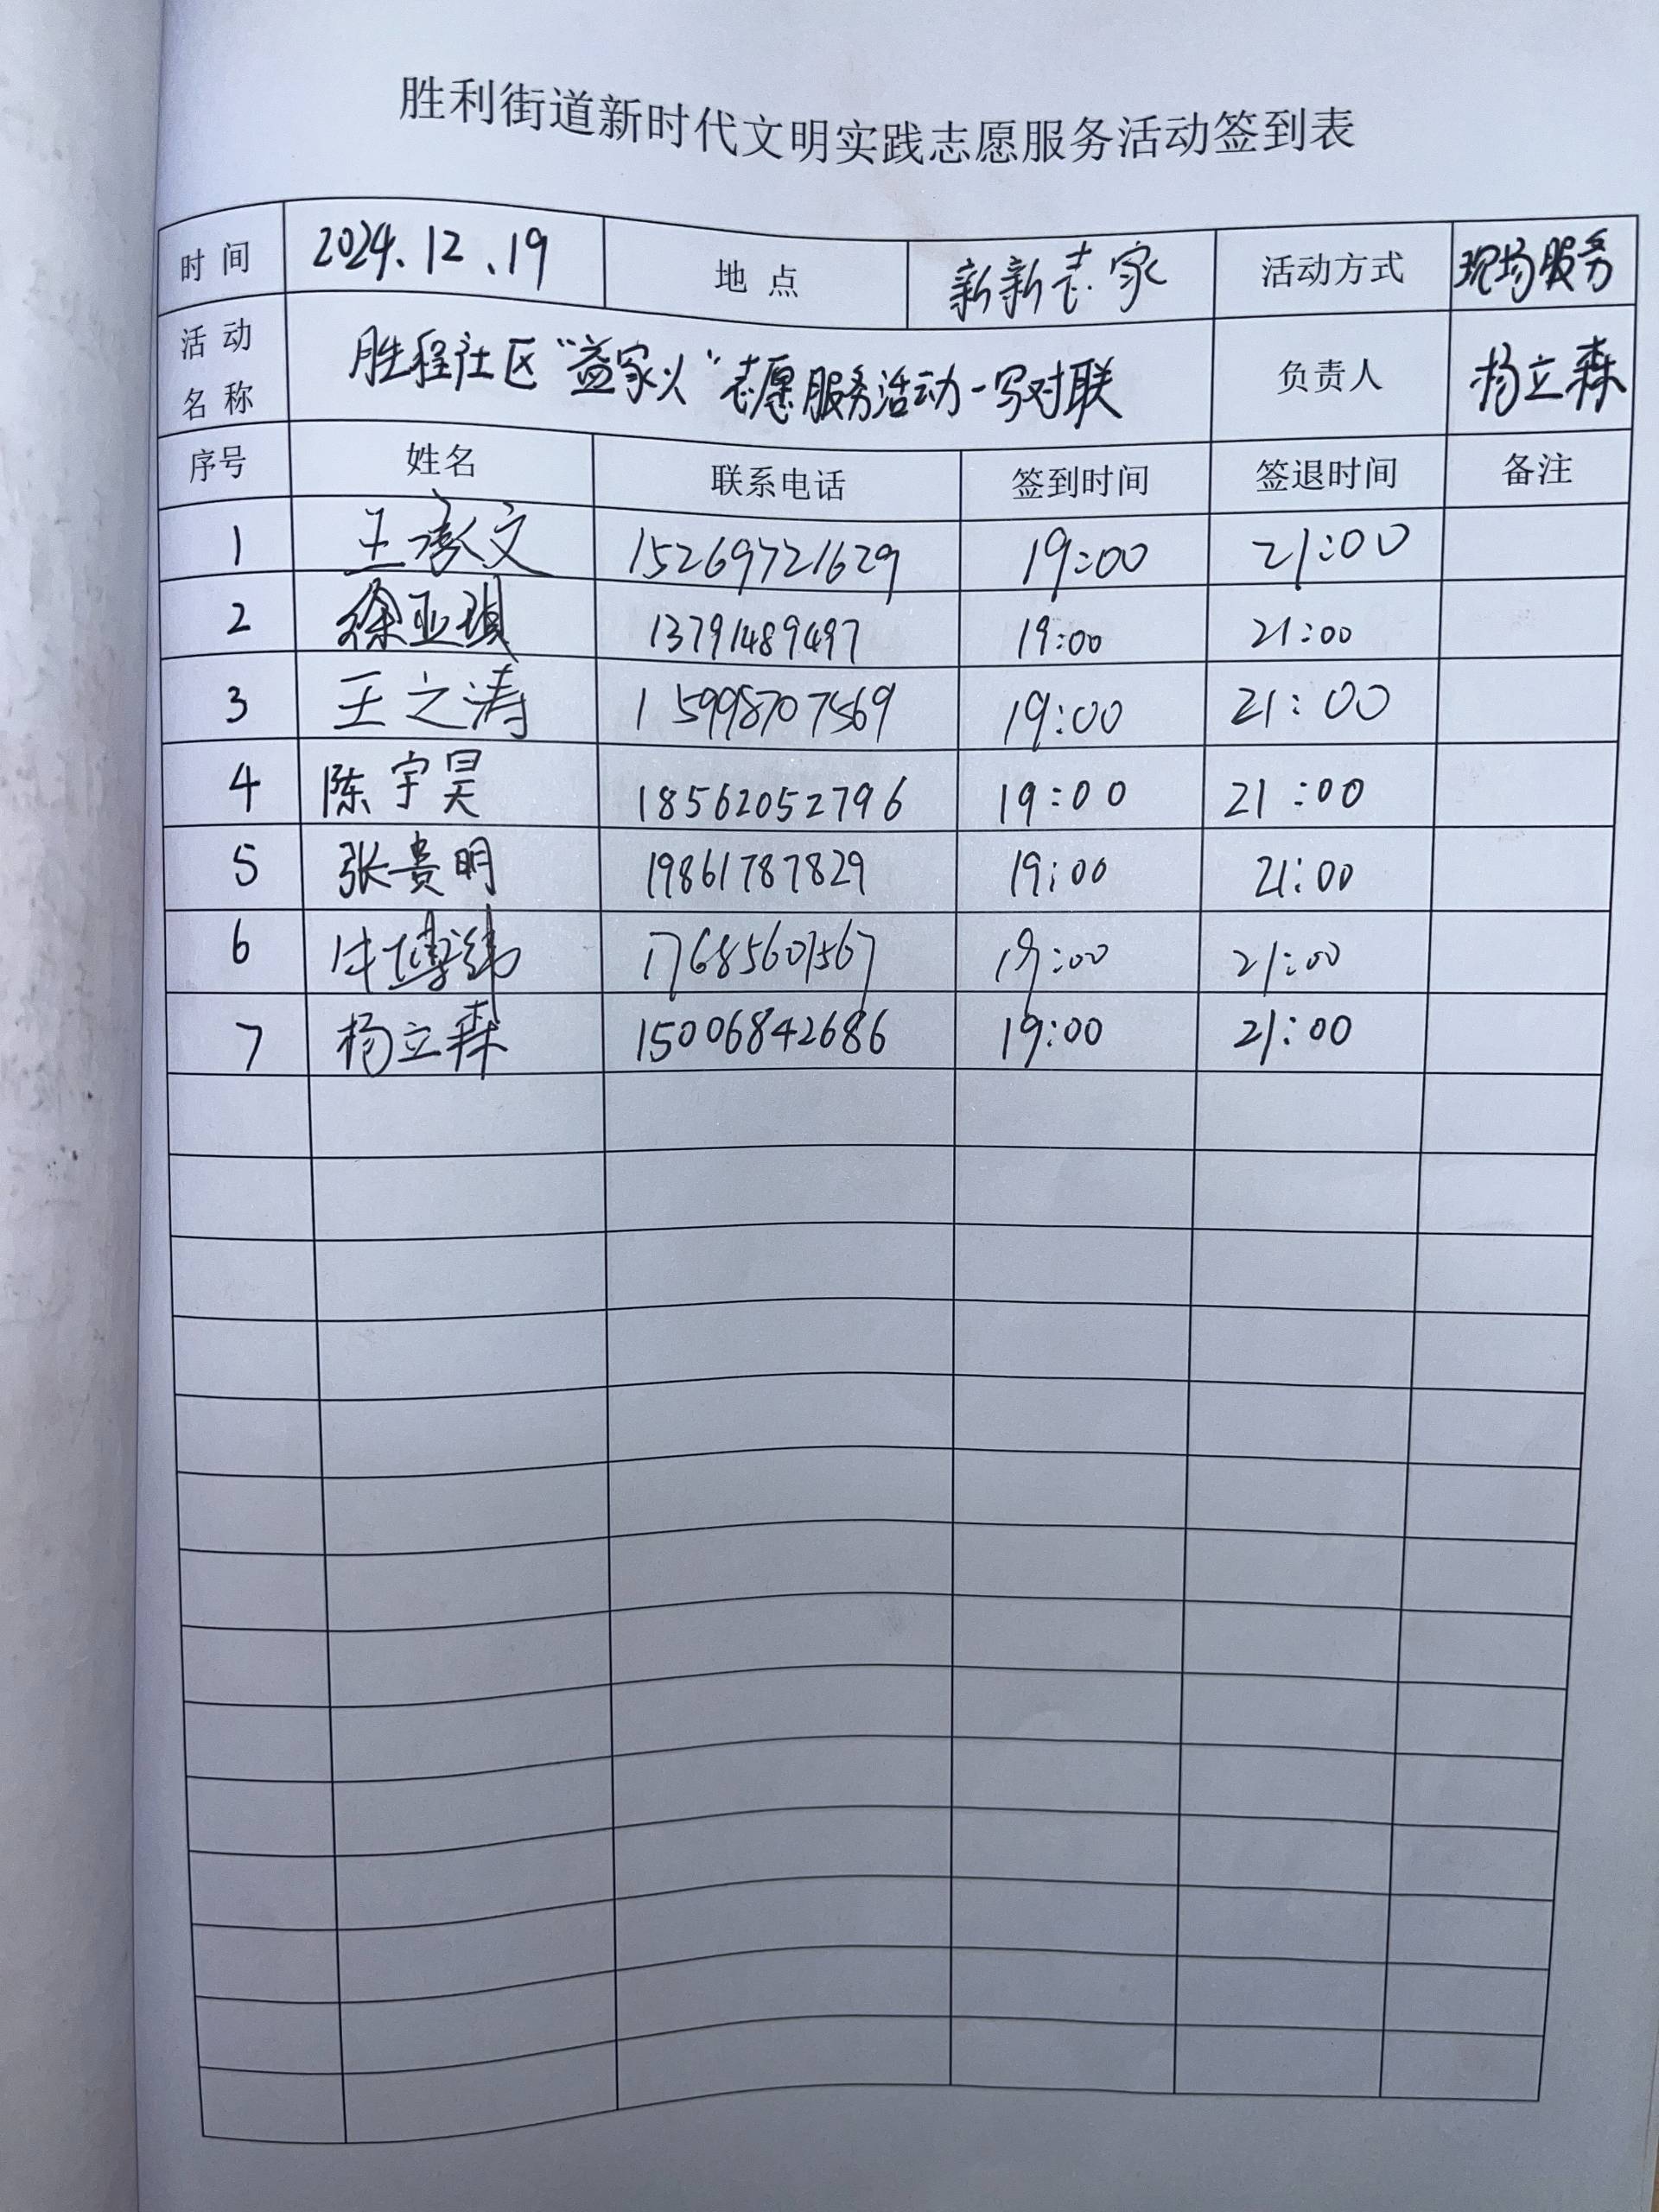 胜利街道新时代文明实践志愿服务活动签到表
时间 2024.12.19 地点 新新志家 活动方式 现场服务
活动名称 胜程社区“益家人”志愿服务活动-写对联 负责人 杨立森
序号 姓名 联系电话 签到时间 签退时间 备注
1 王承文 15269721629 19:00 21:00
2 徐亚琪 13791489497 19:00 21:00
3 王之涛 15998707569 19:00 21:00
4 陈宇昊 18562052796 19:00 21:00
5 张贵明 19861787829 19:00 21:00
6 牛博 17685601567 19:00 21:00
7 杨立森 15006842686 19:00 21:00